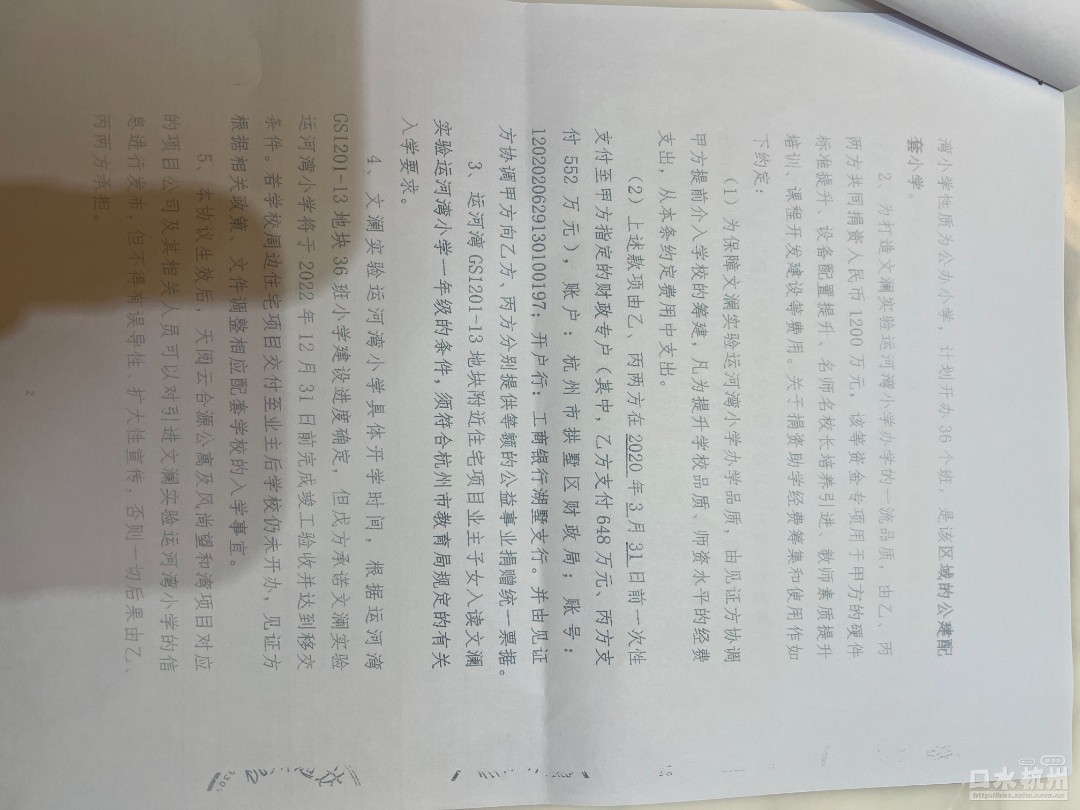 湾小学性质为公办小学，计划开办36个班，是该区域的公建配
套小学。
2、为打造文澜实验运河湾小学办学的一流品质，由乙、丙
两方共同捐资人民币1200万元，该等资金专项用于甲方的硬件
标准提升、设备配置提升、名师名校长培养引进、教师素质提升
培训、课程开发建设等费用。关于捐资助学经费筹集和使用作如
下约定：
（1）为保障文澜实验运河湾小学办学品质，由见证方协调
甲方提前介入学校的筹建，凡为提升学校品质、师资水平的经费
支出，从本条约定费用中支出。
（2）上述款项由乙、丙两方在2020年3月31日前一次性
支付至甲方指定的财政专户（其中，乙方支付648万元、丙方支
付552万元），账户：杭州市拱墅区财政局；账号：
1202020629130100197；开户行：工商银行湖墅支行。并由见证
方协调甲方向乙方、丙方分别提供等额的公益事业捐赠统一票据。
3、运河湾GS1201-13地块附近住宅项目业主子女入读文澜
实验运河湾小学一年级的条件，须符合杭州市教育局规定的有关
入学要求。
4、文澜实验运河湾小学具体开学时间，根据运河湾
GS1201-13地块36班小学建设进度确定，但戊方承诺文澜实验
运河湾小学将于2022年12月31日前完成竣工验收并达到移交
条件。若学校周边住宅项目交付至业主后学校仍未开办，见证方
根据相关政策、文件调整相应配套学校的入学事宜。
5、本协议生效后，天阅云合源公寓及风尚望和湾项目对应
的项目公司及其相关人员可以对引进文澜实验运河湾小学的信
息进行发布，但不得有误导性、扩大性宣传，否则一切后果由乙、
丙两方承担。
2
口水杭州